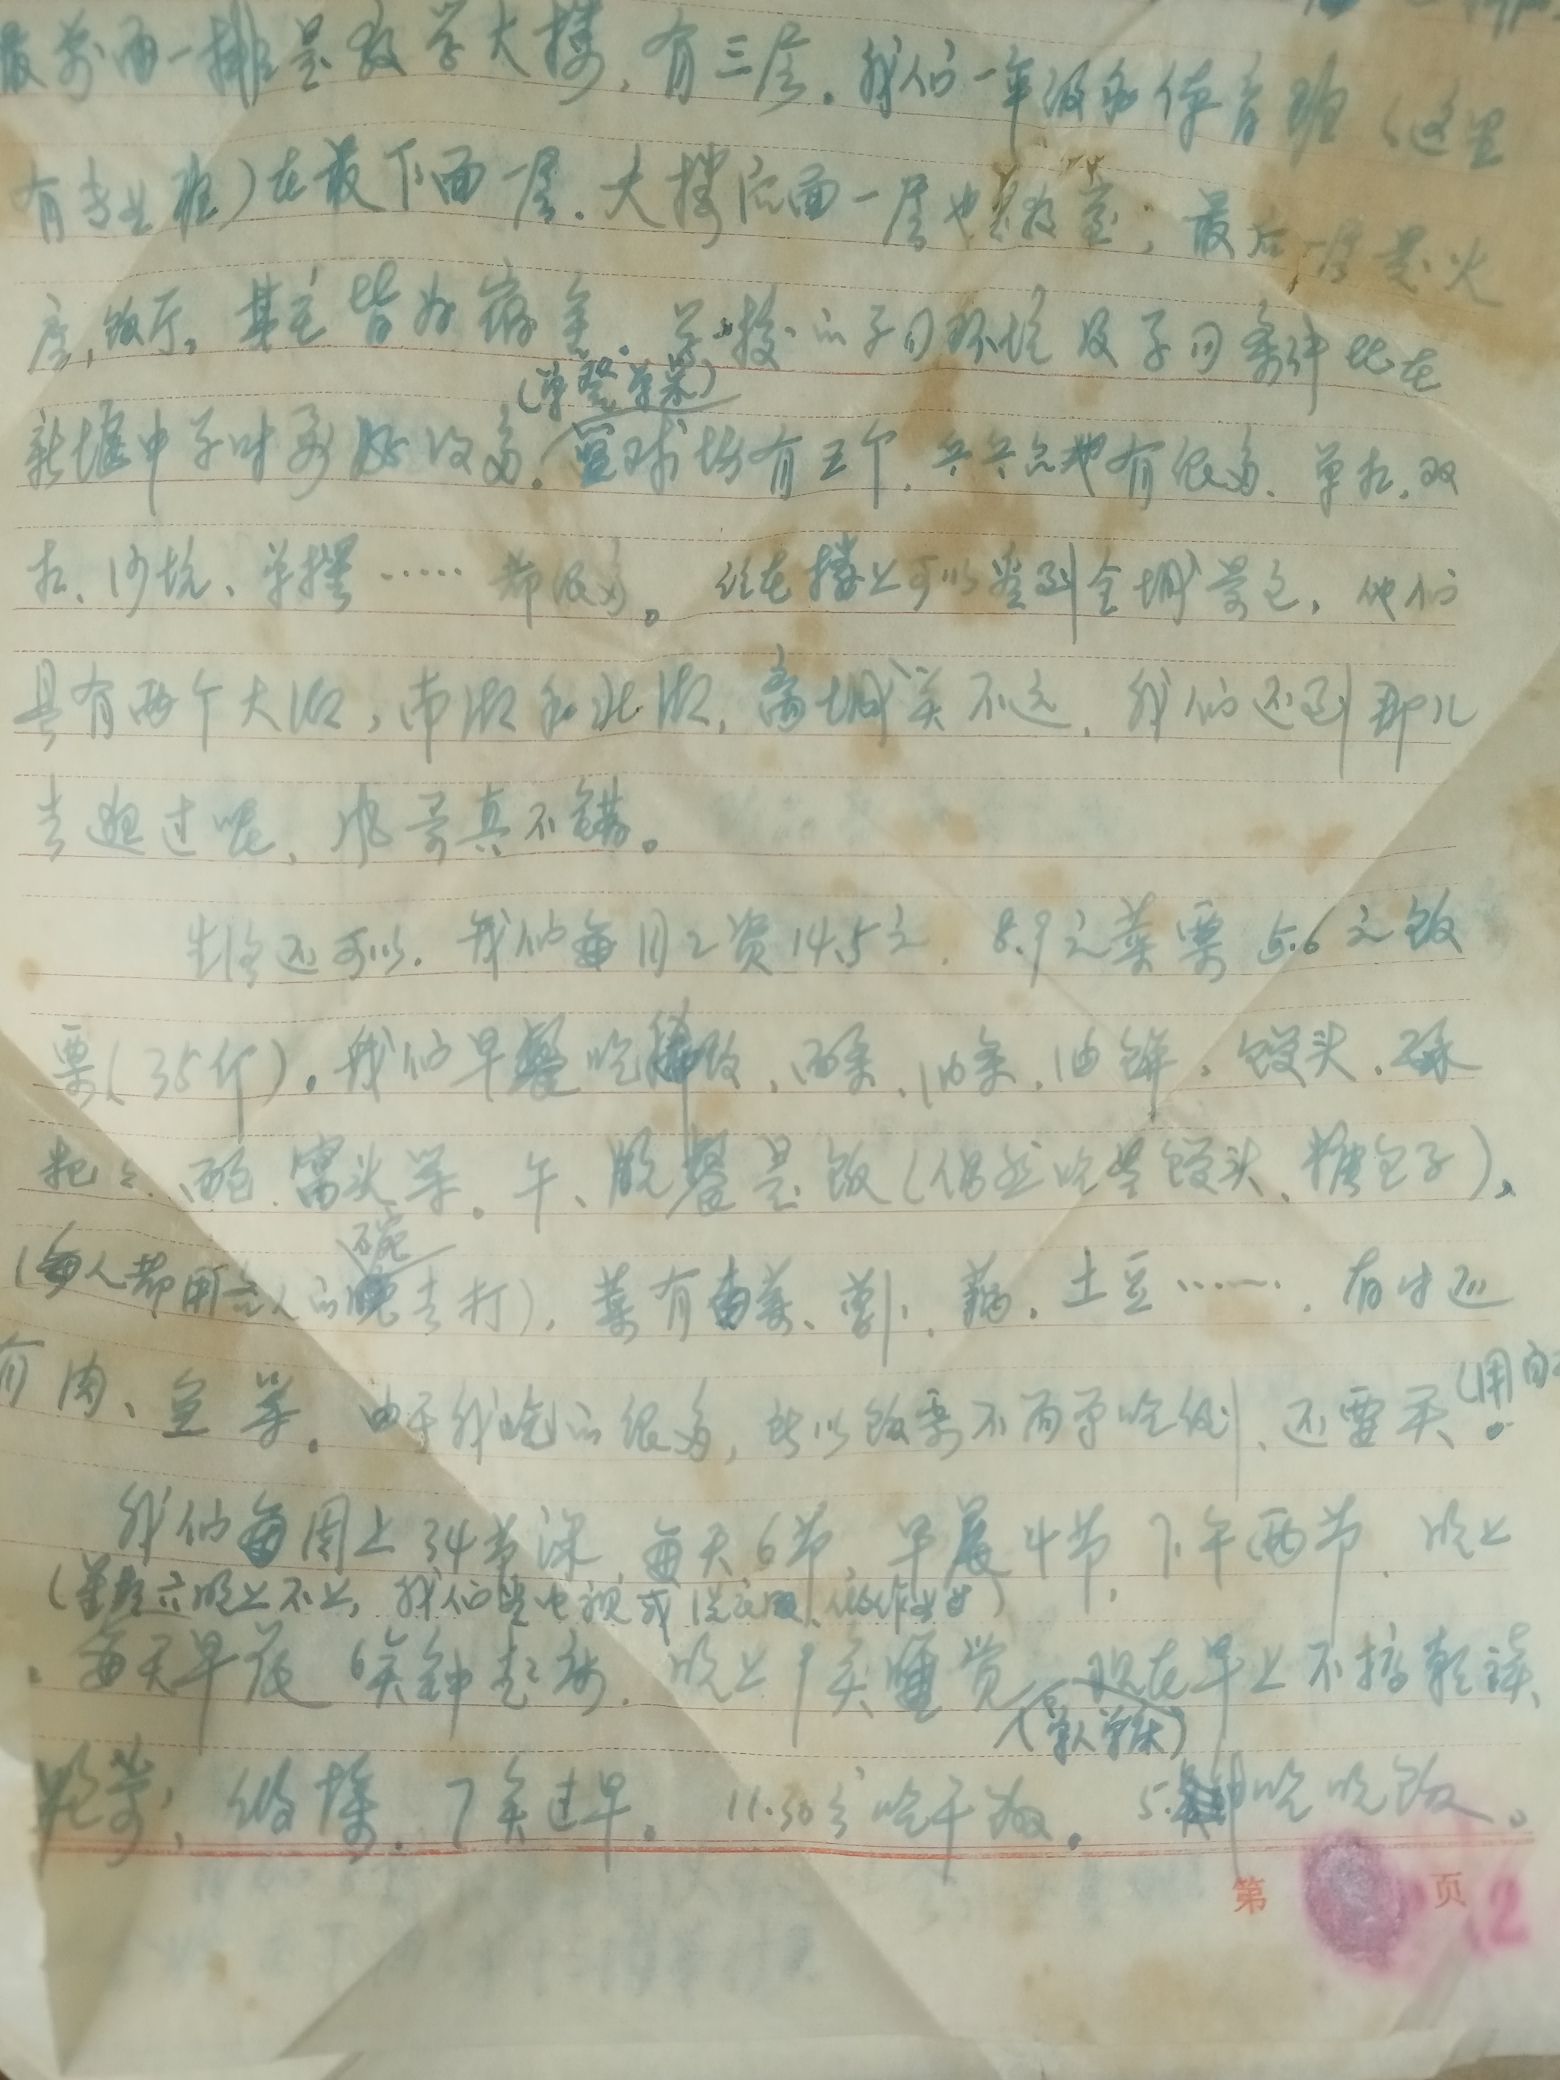 最前面一排是教学大楼，有三层。我们一年级和体育班（这里
有专业班）在最下面一层．大楼后面一层也是教室；最后一层是火
房，饭厅。其它皆为宿舍．学校的学习环境及学习条件比在
（单登单架）
新堰中学时要好得多。篮球场有三个．乒乓台也有很多、单杠，双
杠、沙坑、吊摆……都很多。站在楼上可以望到全城景色，他们
县有两个大湖，南湖和北湖，离城关不远，我们还到那儿
去逛过呢，风景真不错。
生活还可以．我们每月工资14.5元．8.9元菜票 5.6元饭
票（35斤）。我们早餐吃稀饭、面条、油条、油饼、馒头、
粑粑、面包、窝头等。午、晚餐是饭（偶然吃些馒头、糖包子）。
碗
（每人都用去打）．菜有、藕、土豆……．有时还
有肉、鱼等。由于我吃的很多，所以饭票不而吃，还要买。（用
我们每周上34节课，每天6节，早晨4节，下午两节．晚上
（星期六晚上不上，我们看电视或洗衣服、做作业
．每天早晨6点钟起床．晚上9点睡觉 现在早上不搞朝读、
（单人单床）
跑步；做操．7点过早。11.30分吃午饭。5.吃晚饭。
第 页
12